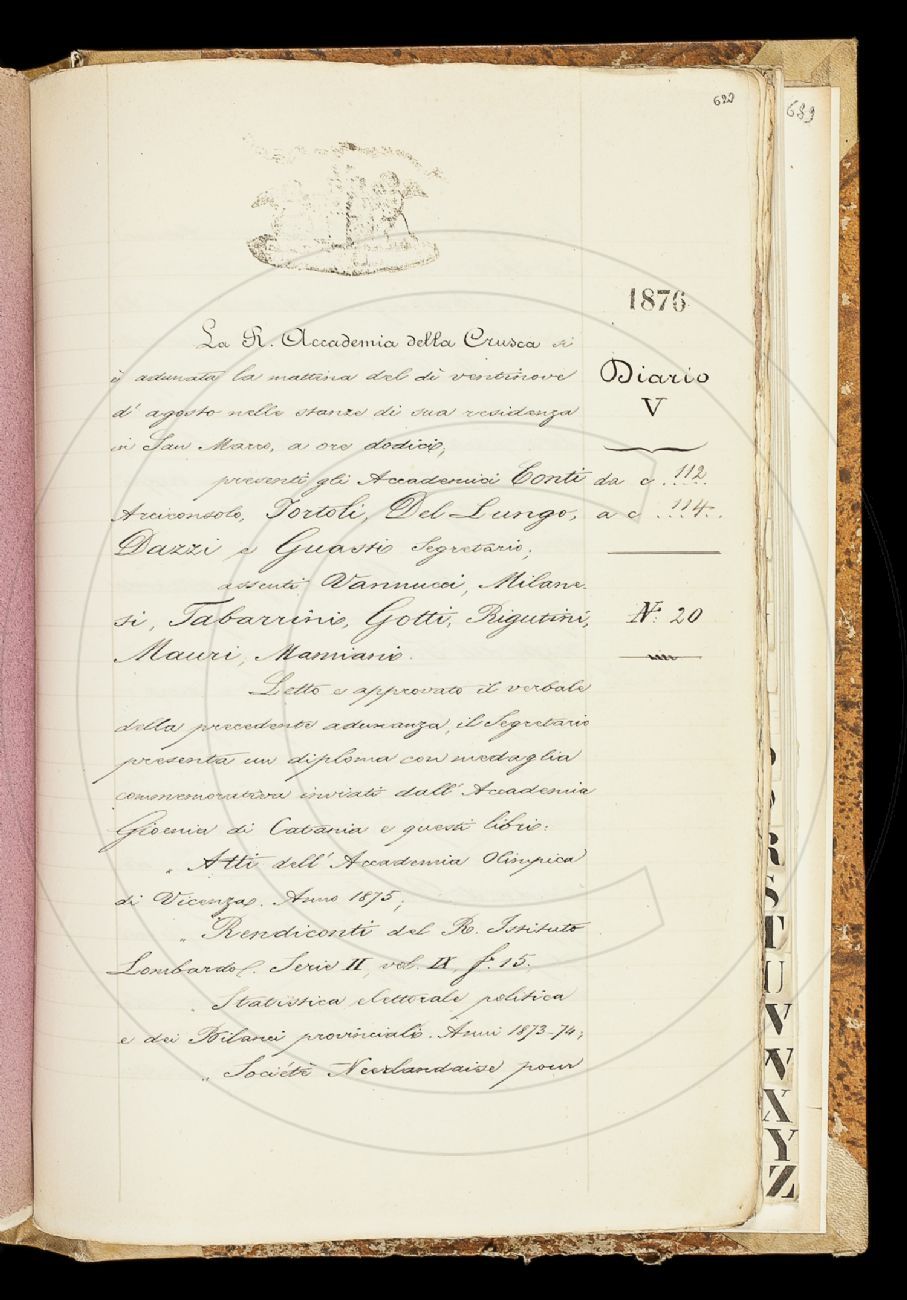 689
1876
La R. Accademia della Crusca si
è adunata la mattina del dì ventinove
d' agosto nelle stanze di sua residenza
in San Marco, a ore dodici,
presenti gli Accademici Conti
Arciconsolo, Tortoli, Del-Lungo,
Dazzi e Guasti Segretario;
assenti Vannucci, Milane-
si, Tabarrini, Gotti, Rigutini,
Mauri, Mamiani.
Letto e approvato il verbale
della precedente adunanza, il Segretario
presenta un diploma con medaglia
commemorativa inviati dall' Accademia
Gioenia di Catania e questi libri:
„ Atti dell' Accademia Olimpica
di Vicenza. Anno 1875;
„ Rendiconti del R. Istituto
Lombardo. Serie II, vol. IX, f.° 15.
„ Statistica elettorale politica
e dei Bilanci provinciali. Anni 1873-74;
„ Société Neerlandaise pour
Diario
V
da c. 112
a c. 114.
N.° 20
R
S
T
U
V
W
X
Y
Z